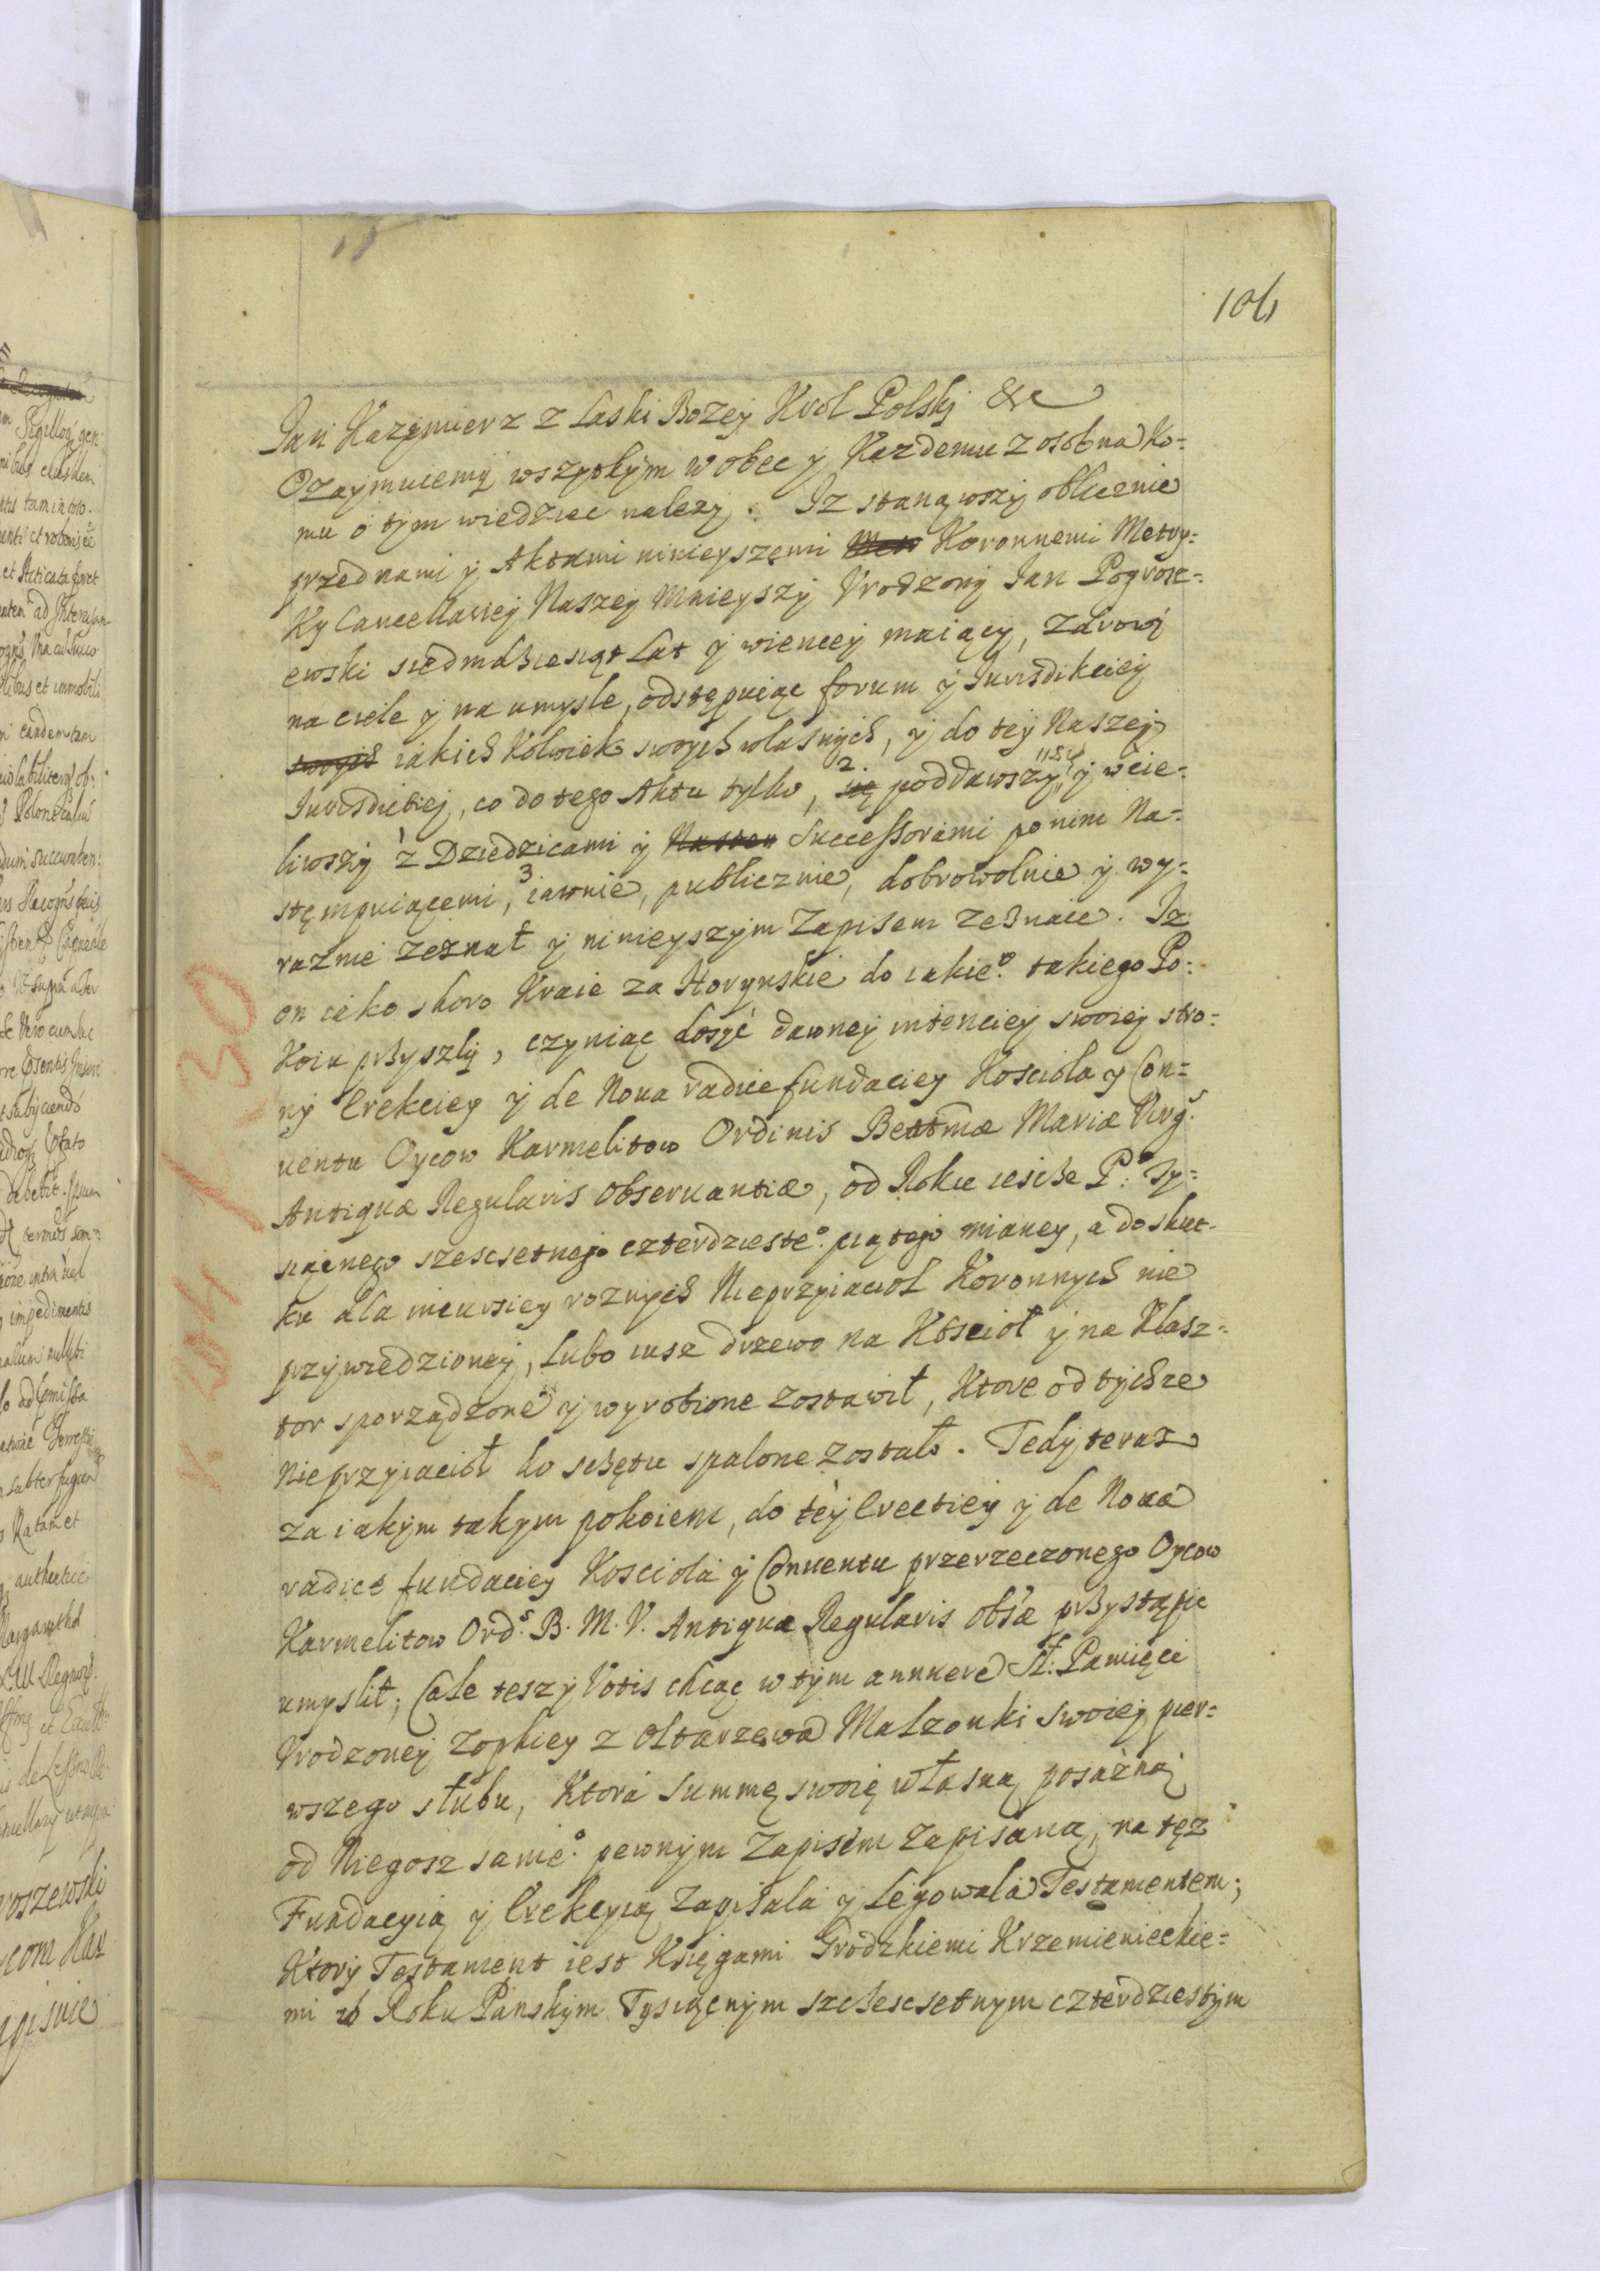 106
Jan Kazymierz z Łaski Bozey Krol Polskj &c
Oznaymuiemy wszystkym wobec y Kazdemu zosobna ko-
mu o tym wiedziec nalezy. Iz stanąwszy oblicznie
przed nami y Aktami ninieyszemi Metr Koronnemi Metry-
ky Cancellariey Naszey Mnieyszy Vrodzony Jan Pogrosz-
ewski siedmdziesiąt Lat y wiencey maiący, zdrowy
na ciele y na umysle, odstępuiąc forum y Jurisdikciey
swoych iakich kolwiek swoych własnych, y do tey Naszey
Jurisdictiey, co do tego Aktu tylko, 2 się poddawszy się y wcie-
liwszy z Dziedzicami y Nastem Successorami po nim Na-
stęmpuiącemi, 3 iawnie, publicznie, dobrowolnie y wy-
raznie zeznał y ninieyszym Zapisem zeznaie. Iz
on ieko skoro Kraie za Horynskie do iakie.o takiego Po-
koiu przyszly, czyniąc dosyć dawney intenciey swoiey stro-
ny Erekciey y de Noua radice fundaciey Kosciola y Con-
uentu Oycow Karmelitow Ordinis Beatmæ Mariæ Virg.s
Antiquæ Regularis Obseruantiæ, od Roku ieszcze P.o Ty-
siącnego szescsetnego czterdzieste.o piątego mianey, a do skut-
ku dla incursiey roznych Nieprzyiaciol Koronnych nie
przywiedzioney, Lubo iusz drzewo na Kościoł y na Klasz-
tor sporządzone y wyrobione zostawił, Ktore od tychze
Nieprzyiacioł do szczętu spalone zostało. Tedy teraz
za iakym takym pokoiem, do tey Erectiey y de Noua
radice fundaciey Kosciola y Conuentu przerzeczonego Oycow
Karmelitow Ord.s B. M. V. Antiquæ Regularis Obsæ przystąpic
umyslił; Cale teszy Votis chcąc w tym annuere Sł: Pamięci
Vrodzoney Zophiey z Ołtarzewa Małzonki swoiey pier-
wszego slubu, Ktora summę swoię własną posazną
od Niegosz same.o pewnym Zapisem zapisaną, na tęz
Fundacyią y Erekcyią zapisala y Legowala Testamentem;
Ktory Testament iest Księgami Grodzkiemi Krzemienieckie-
mi w Roku Panskym Tysiącnym szesc​setnym czterdziestym